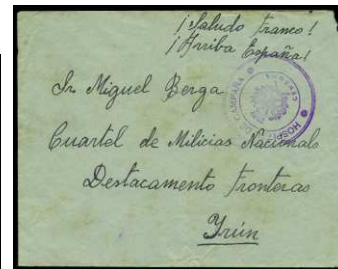 ¡Saludo Franco!
¡Arriba España!
Sr Miguel Berga
Cuartel de Milicias Nacionals
Destacamento Fronteras
Yrún
HOSPITAL DE CAMPAÑA